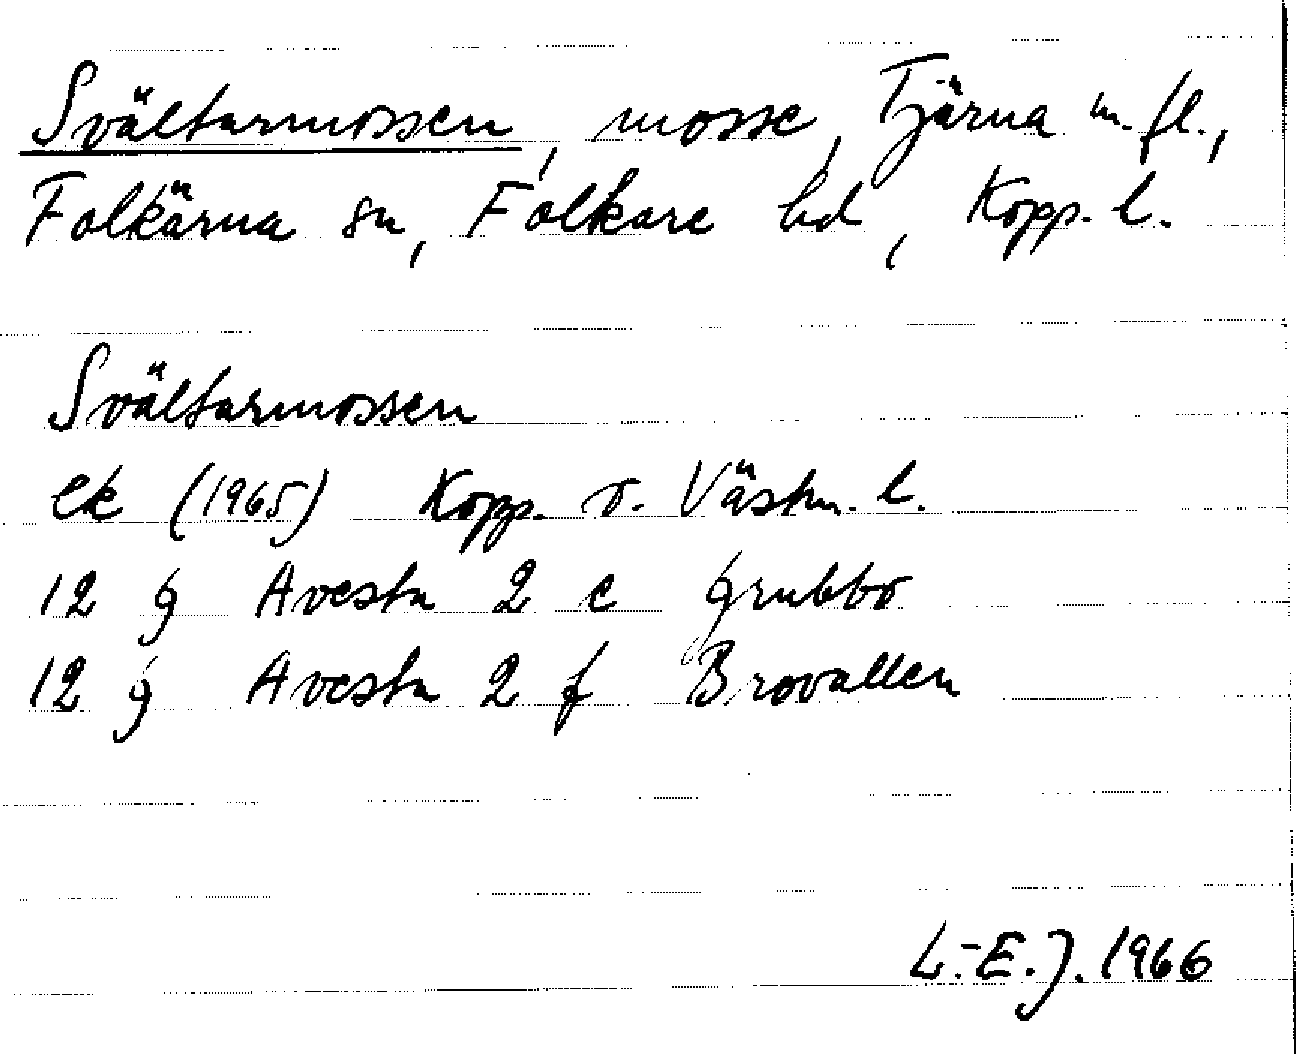 Svältarmossen, mosse, Tjärna m. fl.,
Folkärna sn, Folkare hd, Kopp. l.
Svältarmossen
ek (1965) Kopp. o. Västm. l.
12 g Avesta 2 e Grubbo
12 g Avesta 2 f Brovallen
L.-E.J. 1966